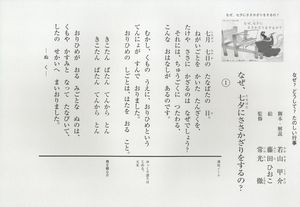 なぜ？どうして？たのしい行事
なぜ、七夕にささかざりをするの？
脚本・解説 若山 甲介
絵 藤田 ひおこ
監修 常光 徹
①
七月 七日の たなばたの 日。
ねがいごとを かいた たんざくを、
たけや ささに かざるのは なぜでしょう？
それには、ちゅうごくに つたわる、
こんな おはなしが あるのです。
むかし、くもの うえに、おりひめという
てんにょが すんで おりました。
おりひめの しごとは、はたを おる こと。
きこたん ぱたん てんから とん
きこたん ぱたん てんから とん
おりひめが おる みごとな ぬのは、
くもや かすみと なって たなびいて、
したの せかいへ まいおりました。
―ぬく―